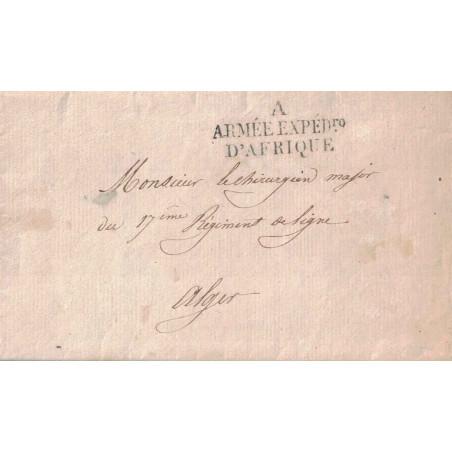 A
ARMÉE EXPÉD.ro
D'AFRIQUE
Monsieur le chirurgien major
du 17ème Régiment de ligne
Alger